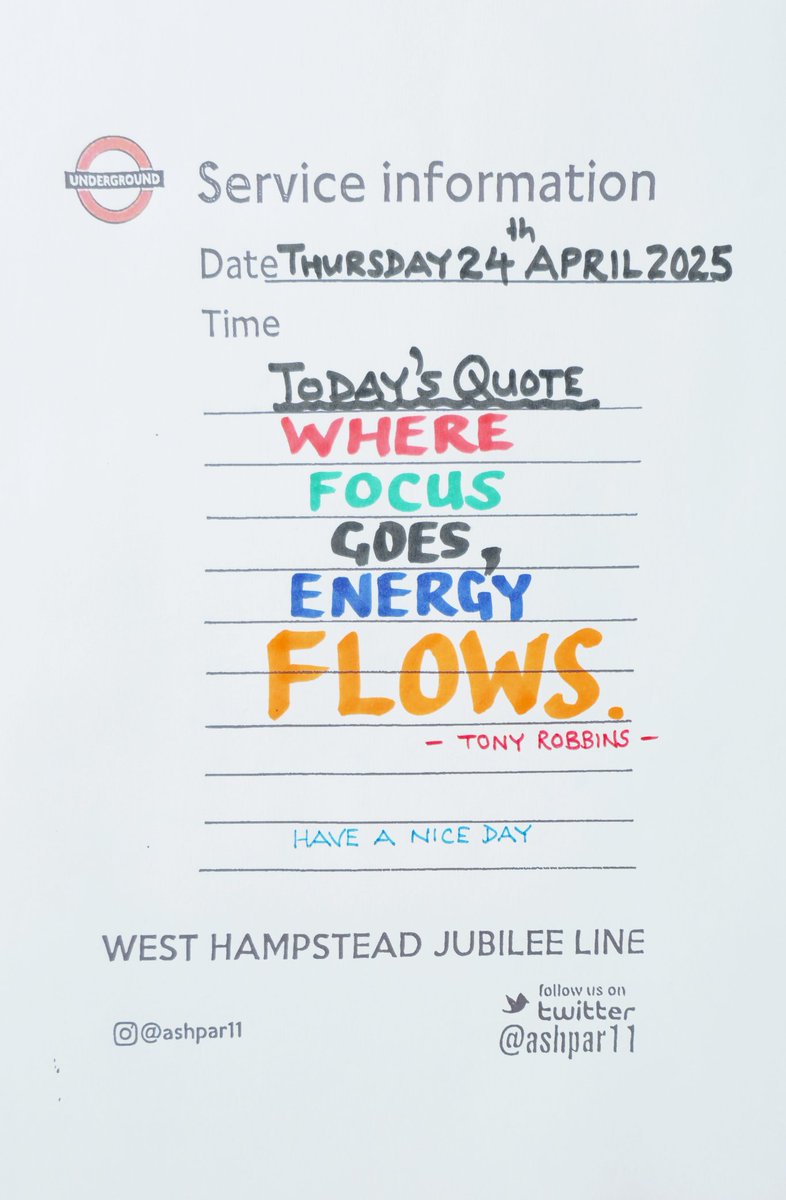 UNDERGROUND
Service information
Date THURSDAY 24th APRIL 2025
Time
TODAY'S QUOTE
WHERE
FOCUS
GOES,
ENERGY
FLOWS.
- TONY ROBBINS -
HAVE A NICE DAY
WEST HAMPSTEAD JUBILEE LINE
follow us on
twitter
@ashpar11
@ashpar11